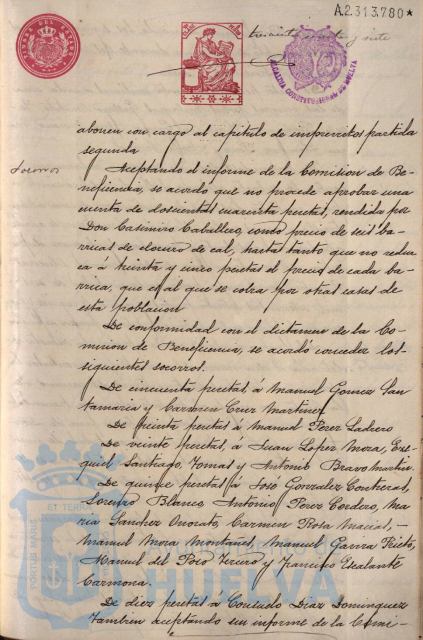 A.2.313.780*
trescientos y siete
ALCALDIA CONSTITUCIONAL DE HUELVA
abonen con cargo al capitulo de imprevistos partida
segunda
Socorros
Aceptando el informe de la Comision de Be-
neficencia, se acordó que no procede aprobar una
cuenta de doscientas cuarenta pesetas, rendida por
Don Casimiro Caballero, como precio de seis ba-
rricas de cloruro de cal, hasta tanto que no reduz
ca á treinta y cinco pesetas el precio de cada ba-
rrica, que es al que se cobra por otras casas de
esta poblacion
De conformidad con el dictamen de la Co-
mision de Beneficencia, se acordó conceder los
siguientes socorros.
De cincuenta pesetas á Manuel Gomez San
tamaria y Carmen Cruz Martinez
De treinta pesetas á Manuel Perez Ladrero
De veinte pesetas, á Juan Lopez Mora, Eze-
quiel Santiago, Tomas y Antonio Bravo Martin.
De quince pesetas á José Gonzalez Contreras,
Lorenzo Blanco, Antonio Perez Cordero, Ma
ria Sanchez Onorato, Carmen Rosa Macias, -
Manuel Mora Montañes, Manuel Gavira Prieto,
Manuel del Pozo Tercero y Francisco Escalante
Carmona.
De diez pesetas á Consuelo Diaz Dominguez
Tambien aceptando un informe de la Comi-
PORTUS MARIS
ET TERRAE
HUELVA